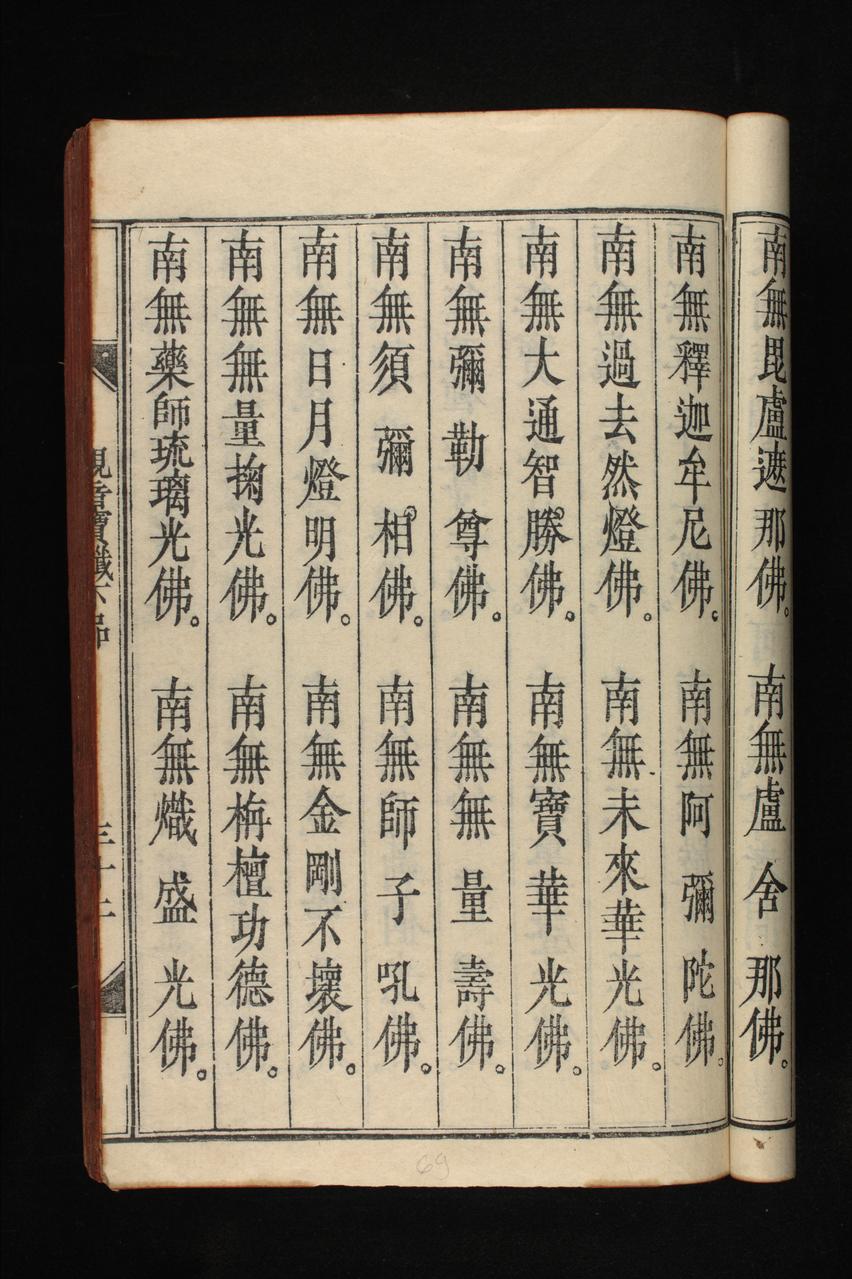 南無毘盧遮那佛。　南無盧舍那佛。
南無釋迦牟尼佛。　南無阿彌陀佛。
南無過去然燈佛。　南無未來華光佛。
南無大通智勝佛。　南無寶華光佛。
南無彌勒尊佛。　南無無量壽佛。
南無須彌相佛。　南無師子吼佛。
南無日月燈明佛。　南無金剛不壞佛。
南無無量掬光佛。　南無栴檀功德佛。
南無藥師琉璃光佛。　南無熾盛光佛。
觀音寶懺下品
69